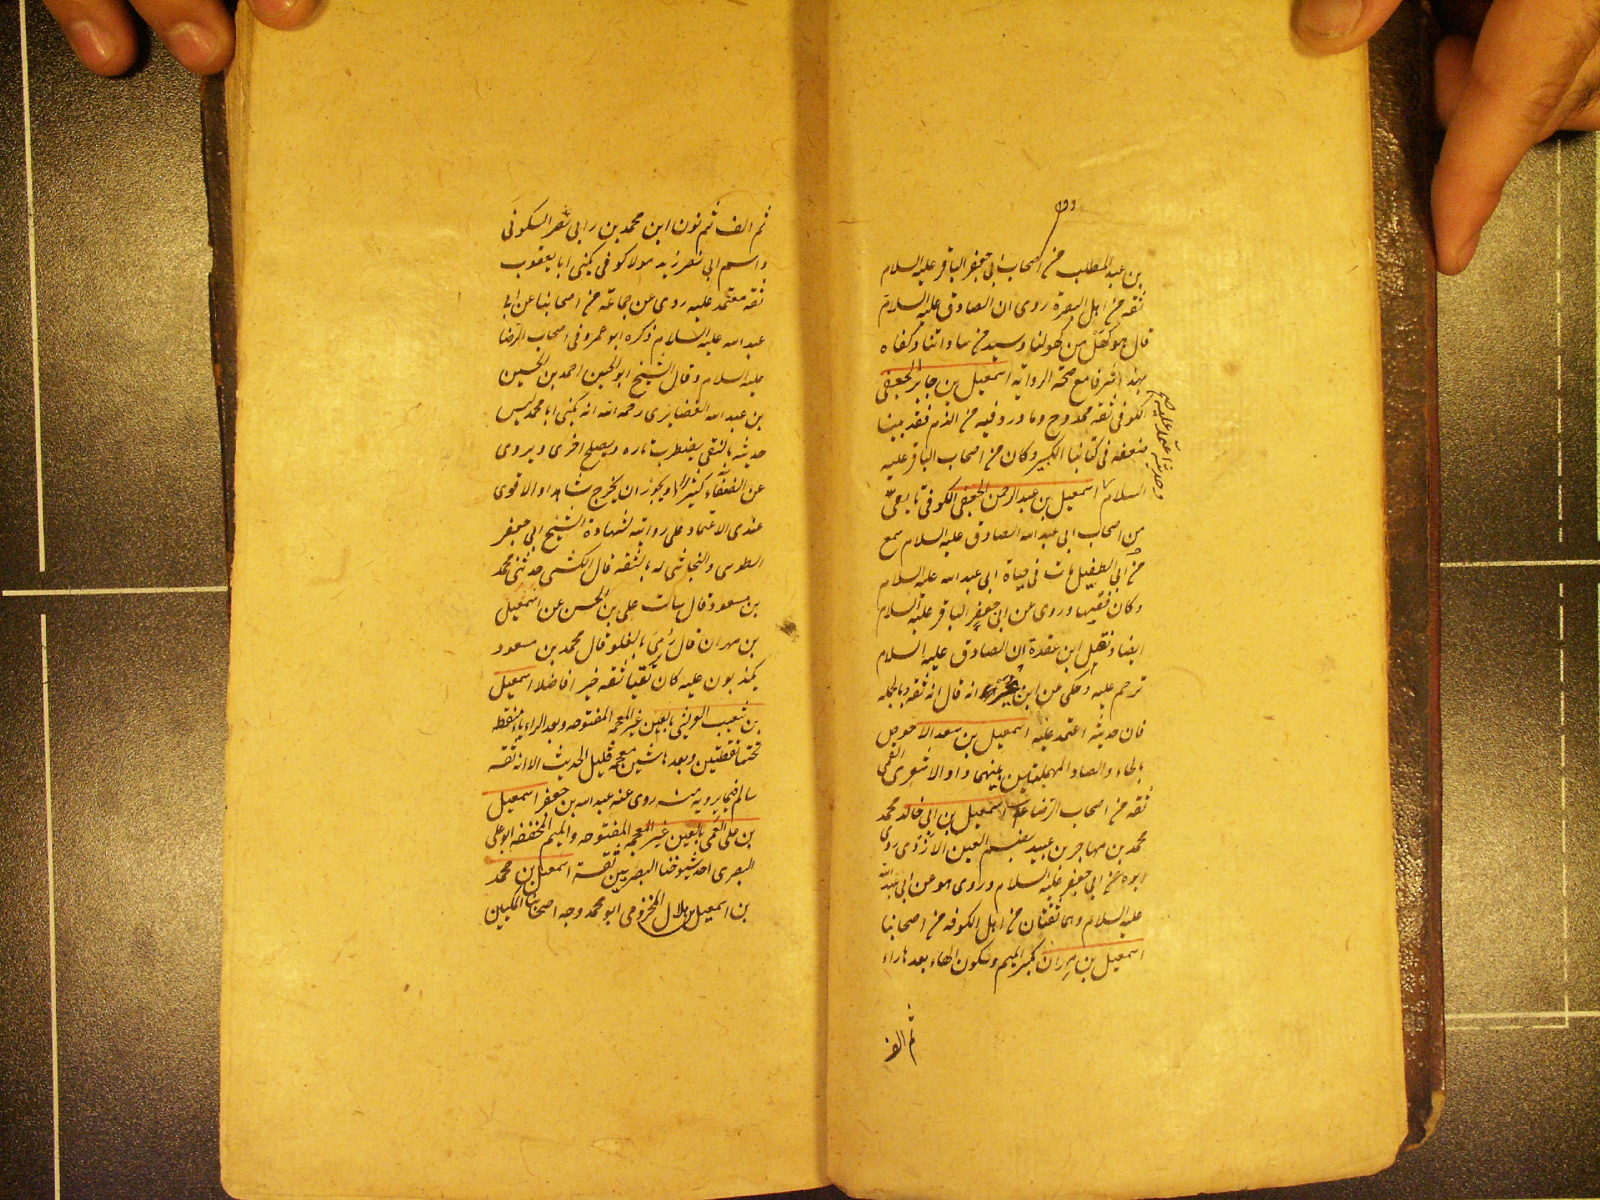 بن عبد المطلب من اصحاب ابي جعفر الباقر عليه السلام
ثقة من اهل البصرة روى ان الصادق عليه السلام
قال هو كهل من كهولنا وسيد من ساداتنا وكفاه
بهذا شرفا مع صحة الرواية اسمعيل بن جابر الجعفي
الكوفي ثقة ممدوح وما ورد فيه من الذم فقد بينا
ضعفه في كتابنا الكبير وكان من اصحاب الباقر عليه
وحديثه اعتمد عليه صح
السلام اسمعيل بن عبد الرحمن الجعفي الكوفي تابعي
من اصحاب ابي عبد الله الصادق عليه السلام سمع
من ابي الطفيل مات في حياة ابي عبد الله عليه السلام
وكان فقيها وروى عن ابي جعفر الباقر عليه السلام
ايضا ونقل ابن عقدة ان الصادق عليه السلام
ترحم عليه وحكى عن ابن انه قال انه ثقة وبالجملة
فان حديثه اعتمد عليه اسمعيل بن سعد الاحوص
بالحاء والصاد المهملتين بينهما واو الاشعري القمي
ثقة من اصحاب الرضا اسمعيل بن ابي خالد محمد
محمد بن مهاجر بن عبيد بضم العين الازدي روى
ابوه عن ابي جعفر عليه السلام وروى هو عن ابي عبد الله
عليه السلام وهما ثقتان من اهل الكوفه من اصحابنا
اسمعيل بن مهران بكسر الميم وسكون الهاء بعدها راء
ثم الف
ثم الف ثم نون ابن محمد بن ابي نصر السكوني
واسم ابي نصر زيد مولا كوفي يكنى ابا يعقوب
ثقه معتمد عليه روى عن جماعة من اصحابنا عن ابي
عبد الله عليه السلام ذكره ابو عمرو في اصحاب الرضا
عليه السلام وقال الشيخ ابو الحسين احمد بن الحسين
بن عبد الله الغضايري رحمه الله انه يكنى ابا محمد ليس
حديثه بالنقي يضطرب تاره ويصلح اخرى ويروى
عن الضعفاء كثيرا ويجوز ان يخرج شاهدا والاقوى
عندي الاعتماد على روايته لشهادة الشيخ ابي جعفر
الطوسي والنجاشي له بالثقه قال الكشي حدثني محمد
بن مسعود قال سالت علي بن الحسن عن اسمعيل
بن مهران قال رمي بالغلو قال محمد بن مسعود
يكذبون عليه كان تقيا ثقه خيرا فاضلا اسمعيل
بن شعيب العريشي بالعين غير المعجمه المفتوحه وبعد الراء ياء منقطه
تحتها نقطتين وبعدها شين معجمه قليل الحديث الا انه ثقه
سالم فيما يرويه منه روى عنه عبد الله بن جعفر اسمعيل
بن علي العمي بالعين غير المعجمه المفتوحه والميم المخففه ابو علي
البصري احد شيوخنا البصريين ثقة اسمعيل بن محمد
بن اسمعيل بن هلال المخزومي ابو محمد وجه اصحابنا المكيين